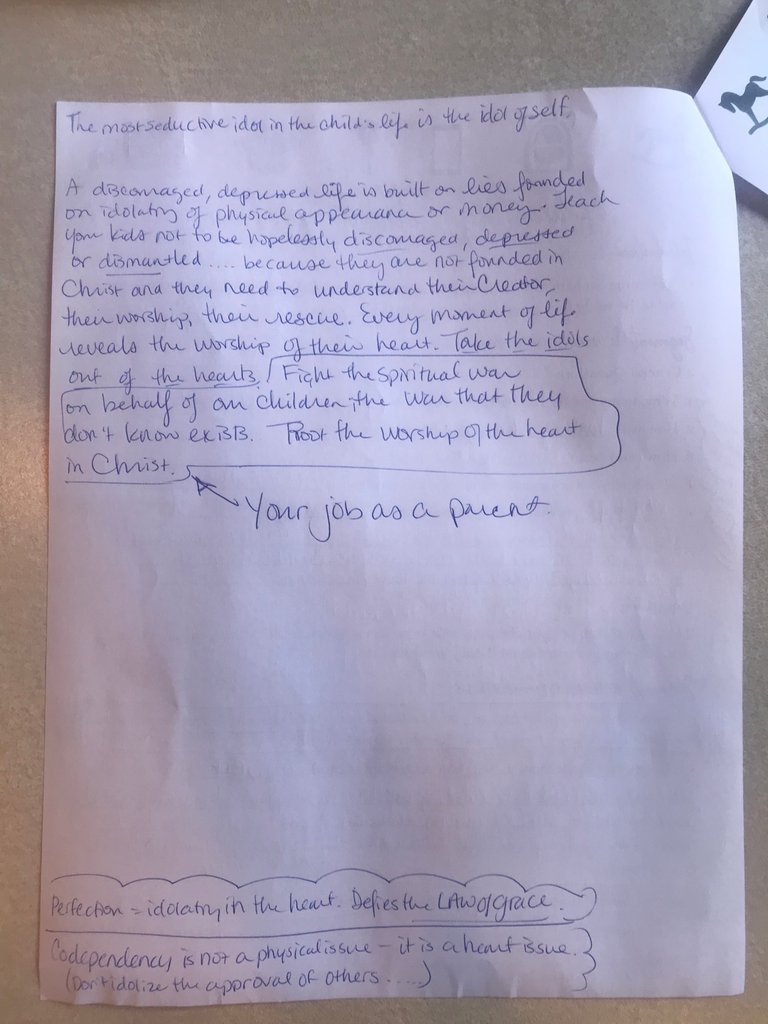 The most seductive idol in the child's life is the idol of self.
A discouraged, depressed life is built on lies founded
on idolatry of physical appearance or money. Teach
your kids not to be hopelessly discouraged, depressed
or dismantled .... because they are not founded in
Christ and they need to understand their Creator,
their worship, their rescue. Every moment of life
reveals the worship of their heart. Take the idols
out of the hearts. Fight the spiritual war
on behalf of our children, the war that they
don't know exists. Root the worship of the heart
in Christ.
Your job as a parent.
Perfection = idolatry in the heart. Defies the LAW of grace.
Codependency is not a physical issue - it is a heart issue.
(Don't idolize the approval of others .....)